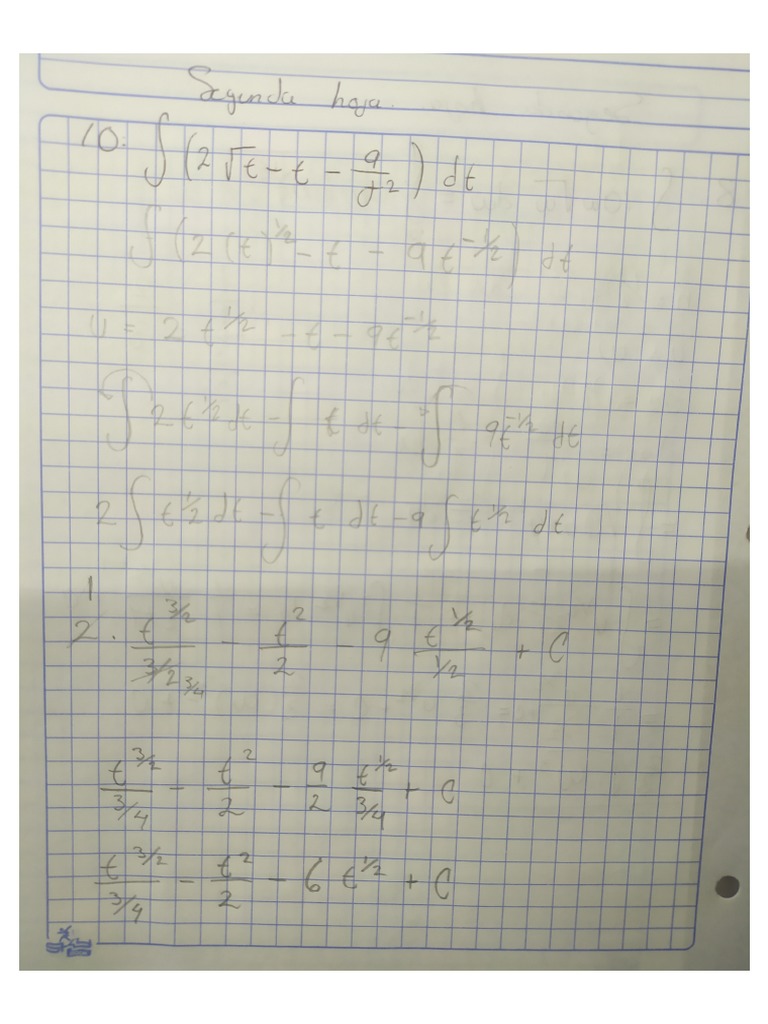 Segunda hoja.
10. ∫ (2√t - t - 9/t²) dt
∫ (2(t)^1/2 - t - 9t^-1/2) dt
u = 2t^1/2 - t - 9t^-1/2
∫ 2t^1/2 dt - ∫ t dt - ∫ 9t^-1/2 dt
2∫ t^1/2 dt - ∫ t dt - 9∫ t^1/2 dt
1
2 · t^3/2 / 3/2 3/4 - t²/2 - 9 t^1/2 / 1/2 + C
t^3/2 / 3/4 - t²/2 - 9/2 t^1/2 / 3/4 + C
t^3/2 / 3/4 - t²/2 - 6 t^1/2 + C